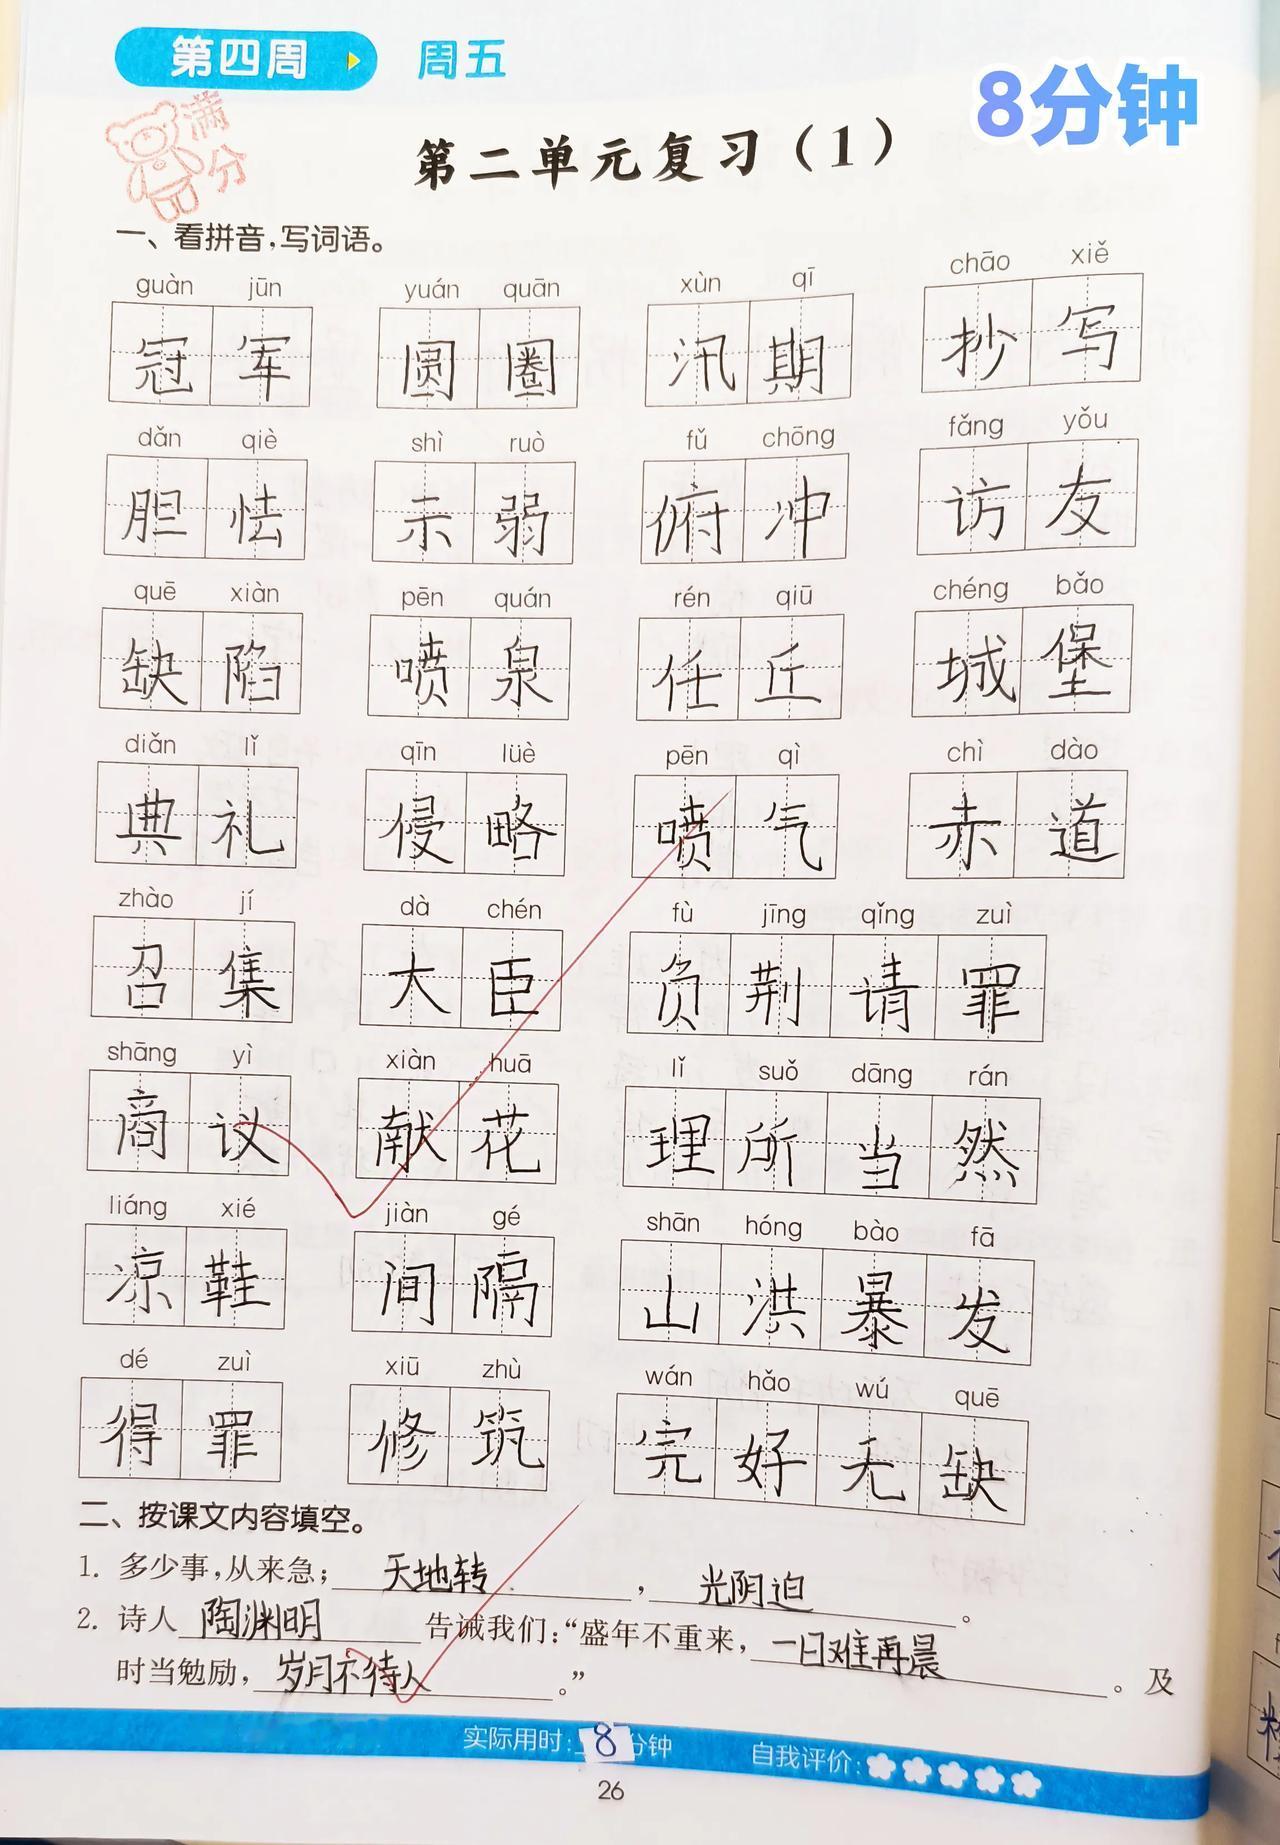 第四周 周五
8分钟
满分
第二单元复习（1）
一、看拼音，写词语。
guàn jūn yuán quān xùn qī chāo xiě
冠军 圆圈 汛期 抄写
dǎn qiè shì ruò fǔ chōng fǎng yǒu
胆怯 示弱 俯冲 访友
quē xiàn pēn quán rén qiū chéng bǎo
缺陷 喷泉 任丘 城堡
diǎn lǐ qīn lüè pēn qì chì dào
典礼 侵略 喷气 赤道
zhào jí dà chén fù jīng qǐng zuì
召集 大臣 负荆请罪
shāng yì xiàn huā lǐ suǒ dāng rán
商议 献花 理所当然
liáng xié jiàn gé shān hóng bào fā
凉鞋 间隔 山洪暴发
dé zuì xiū zhù wán hǎo wú quē
得罪 修筑 完好无缺
二、按课文内容填空。
1. 多少事，从来急；天地转，光阴迫。
2. 诗人陶渊明告诫我们：“盛年不重来，一日难再晨。及
时当勉励，岁月不待人。”
实际用时：8分钟 自我评价：
26